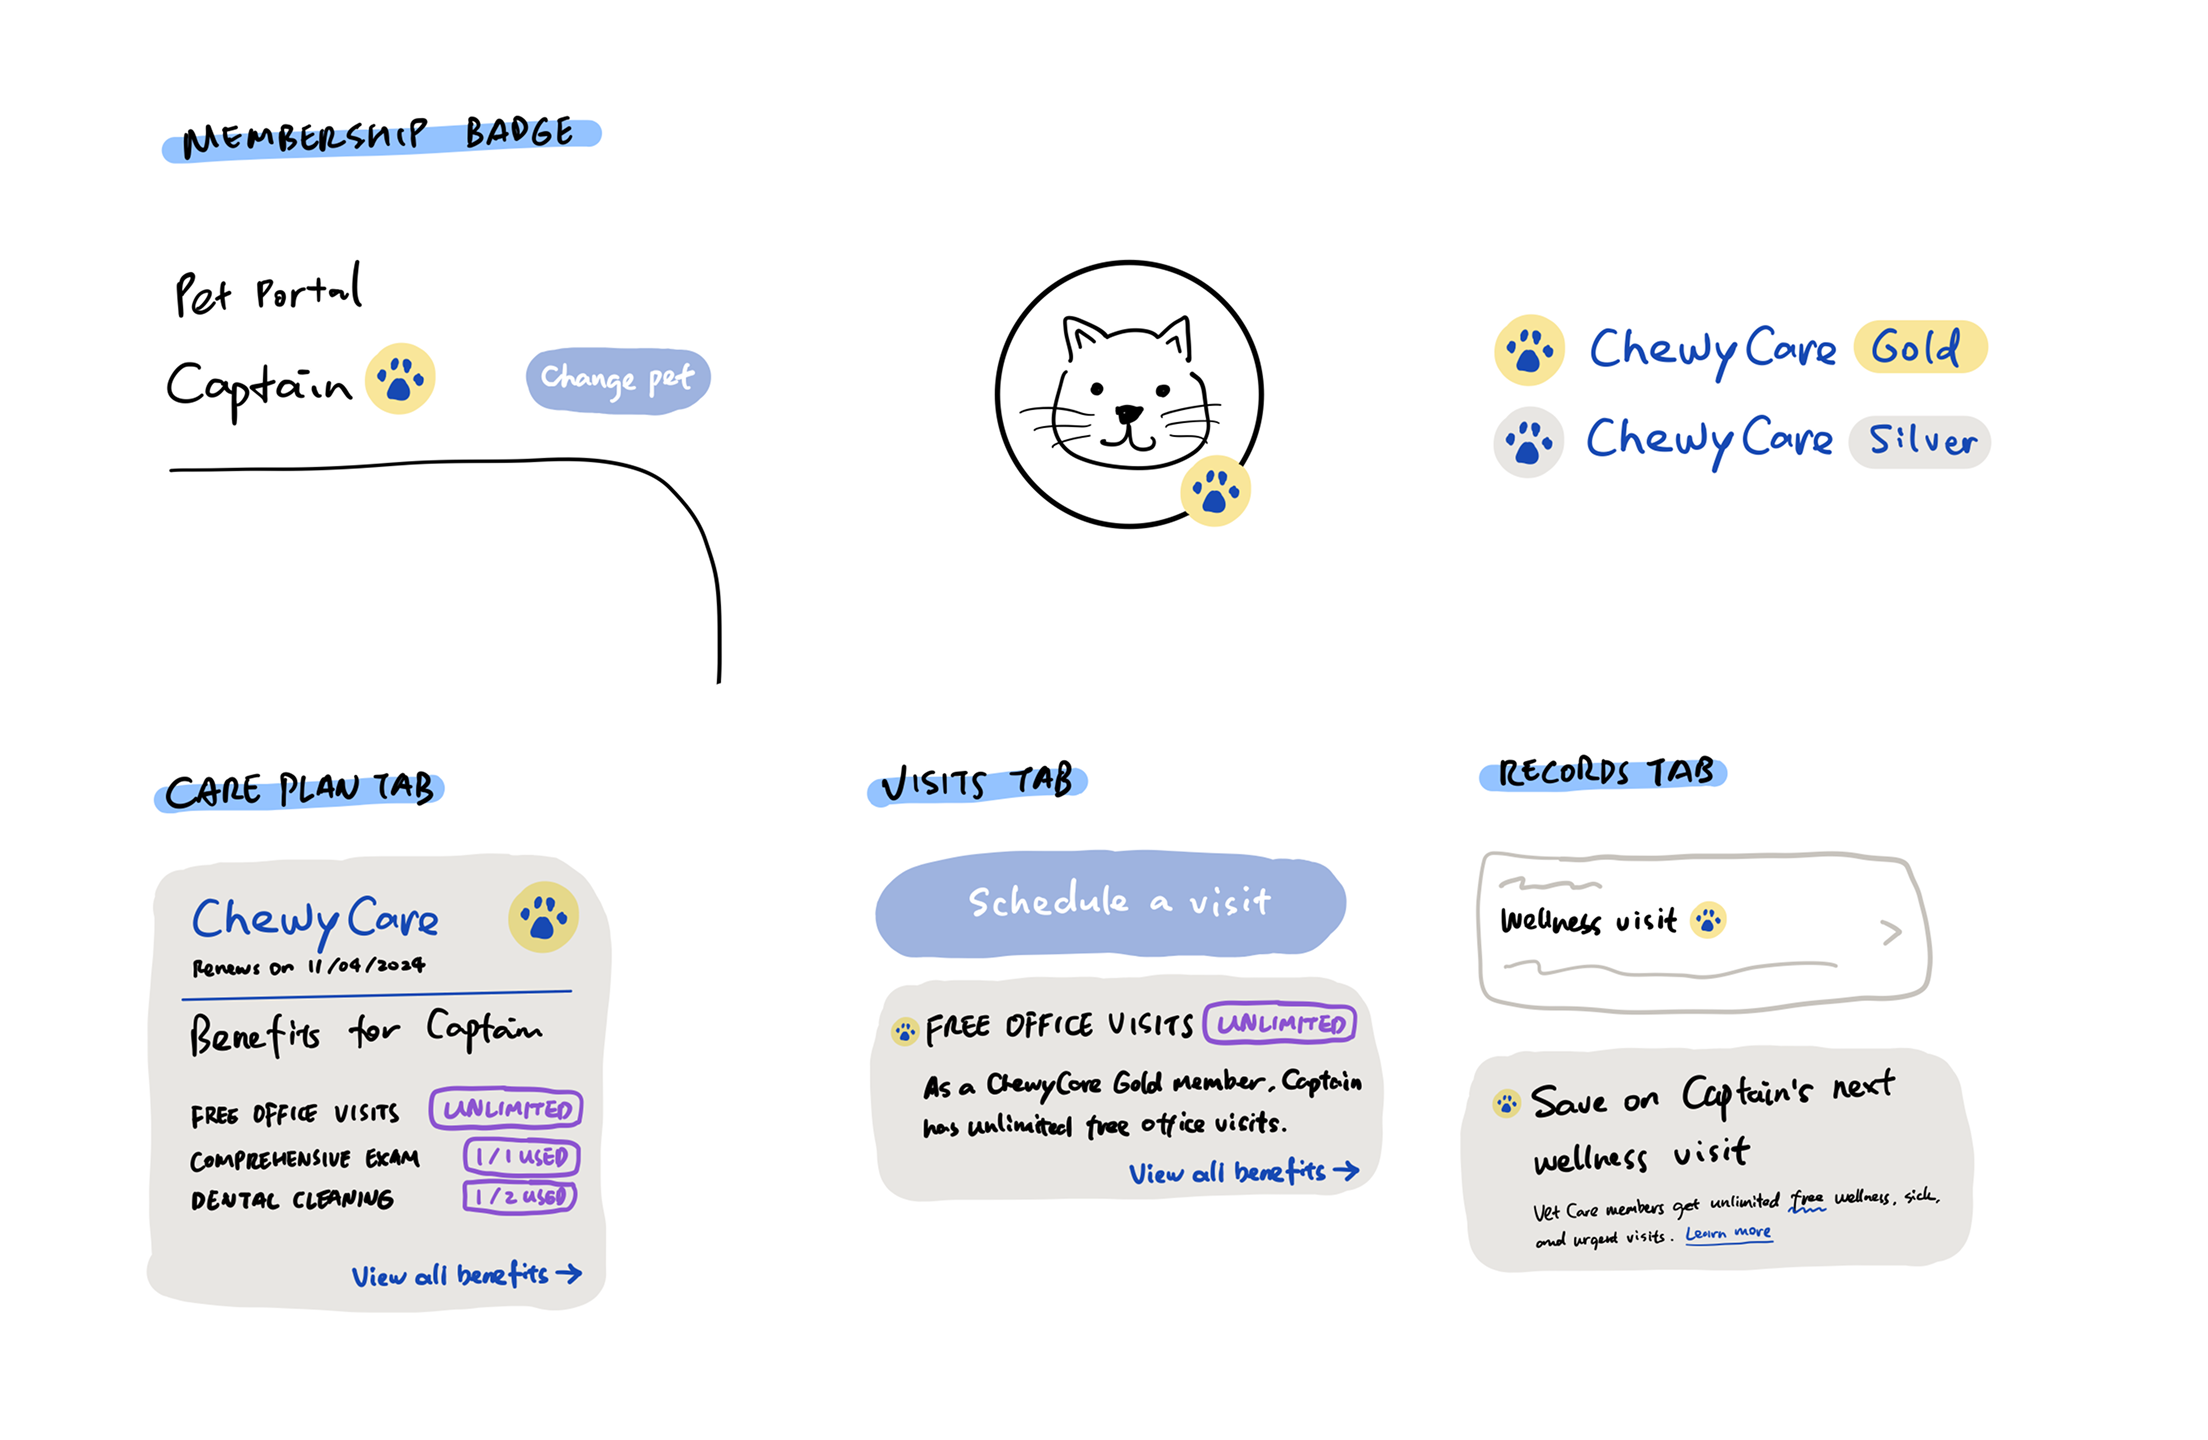 MEMBERSHIP BADGE
Pet Portal
Captain
Change pet
ChewyCare Gold
ChewyCare Silver
CARE PLAN TAB
ChewyCare
Renews on 11/04/2024
Benefits for Captain
FREE OFFICE VISITS UNLIMITED
COMPREHENSIVE EXAM 1/1 USED
DENTAL CLEANING 1/2 USED
View all benefits →
VISITS TAB
Schedule a visit
FREE OFFICE VISITS UNLIMITED
As a ChewyCare Gold member, Captain
has unlimited free office visits.
View all benefits →
RECORDS TAB
Wellness visit
Save on Captain's next
wellness visit
Vet Care members get unlimited free wellness, sick,
and urgent visits. Learn more